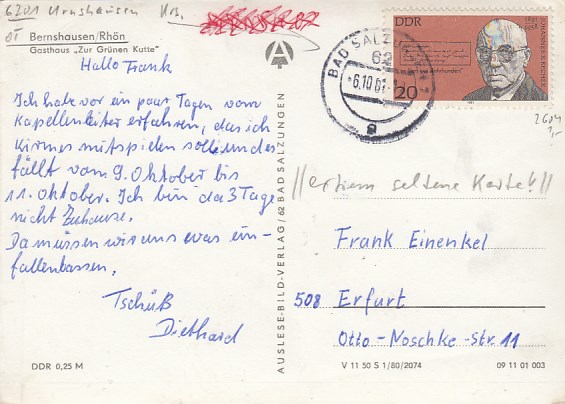 6201 Urnshausen Krs.
OT Bernshausen/Rhön
Gasthaus „Zur Grünen Kutte"
Hallo Frank
Ich habe vor ein paar Tagen vom
Kapellenleiter erfahren, das ich
Kirmes mitspielen soll und es
fällt vom 9. Oktober bis
11. Oktober. Ich bin da 3 Tage
nicht Zuhause.
Da müssen wir uns was ein-
fallenlassen.
Tschüß
Diethard
DDR 0,25 M
AUSLESE-BILD-VERLAG/62 BAD SALZUNGEN
DDR
20
JOHANNES R. BECHER
BAD SALZUNGEN 1
62
-6.10.81
a
2604
//extrem seltene Karte!!//
Frank Einenkel
508 Erfurt
Otto-Noschke-Str. 11
V 11 50 S 1/80/2074
09 11 01 003